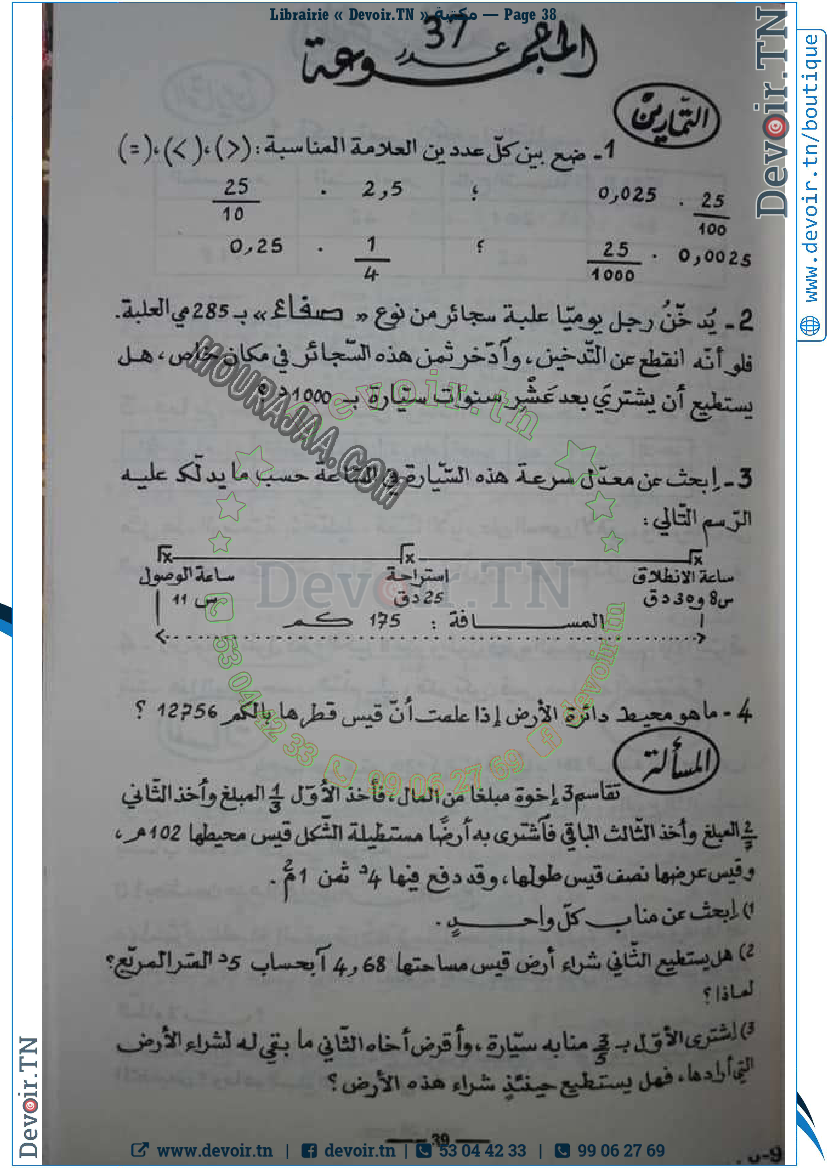 Librairie « Devoir.TN » مكتبة — Page 38
المجموعة عدد 37
التمارين
1- ضع بين كلّ عددين العلامة المناسبة : (>)،(<)،(=)
25/100 . 0,025 ؛ 2,5 . 25/10
0,0025 . 25/1000 ؛ 1/4 . 0,25
2- يُدخّنُ رجل يوميّا علبة سجائر من نوع « صفاء » بـ 285 مي العلبة.
فلو أنّه انقطع عن التّدخين، وآدّخر ثمن هذه السّجائر في مكان خاص، هل
يستطيع أن يشتري بعد عَشْرِ سنوات سيّارة بـ 1000د؟
3- اِبحث عن معدّل سرعة هذه السّيارة في السّاعة حسب ما يدلّك عليه
الرّسم التّالي :
ساعة الانطلاق استراحة ساعة الوصول
س8 و30 دق 25 دق س 11
المسافة : 175 كم
4- ماهو محيط دائرة الأرض إذا علمت أنّ قيس قطرها بالكم 12756 ؟
المسألة
تقاسم 3 إخوة مبلغا من المال، فأخذ الأوّل 1/3 المبلغ وأخذ الثّاني
2/7 المبلغ وأخذ الثّالث الباقي فآشترى به أرضًا مستطيلة الشّكل قيس محيطها 102م،
وقيس عرضها نصف قيس طولها، وقد دفع فيها 4د ثمن 1م².
1) اِبحث عن مناب كلّ واحدٍ.
2) هل يستطيع الثّاني شراء أرض قيس مساحتها 4,68 آ بحساب 5د المتر المربّع؟
لماذا؟
3) اِشترى الأوّل بـ 3/5 منابه سيّارة، وأقرض أخاه الثّاني ما بقي له لشراء الأرض
التي أرادها، فهل يستطيع حينئذٍ شراء هذه الأرض؟
39
Devoir.TN
www.devoir.tn/boutique
MOURAJAA.COM
devoir.tn
Devoir.TN
53 04 42 33
99 06 27 69
devoir.tn
Devoir.TN
www.devoir.tn | devoir.tn | 53 04 42 33 | 99 06 27 69